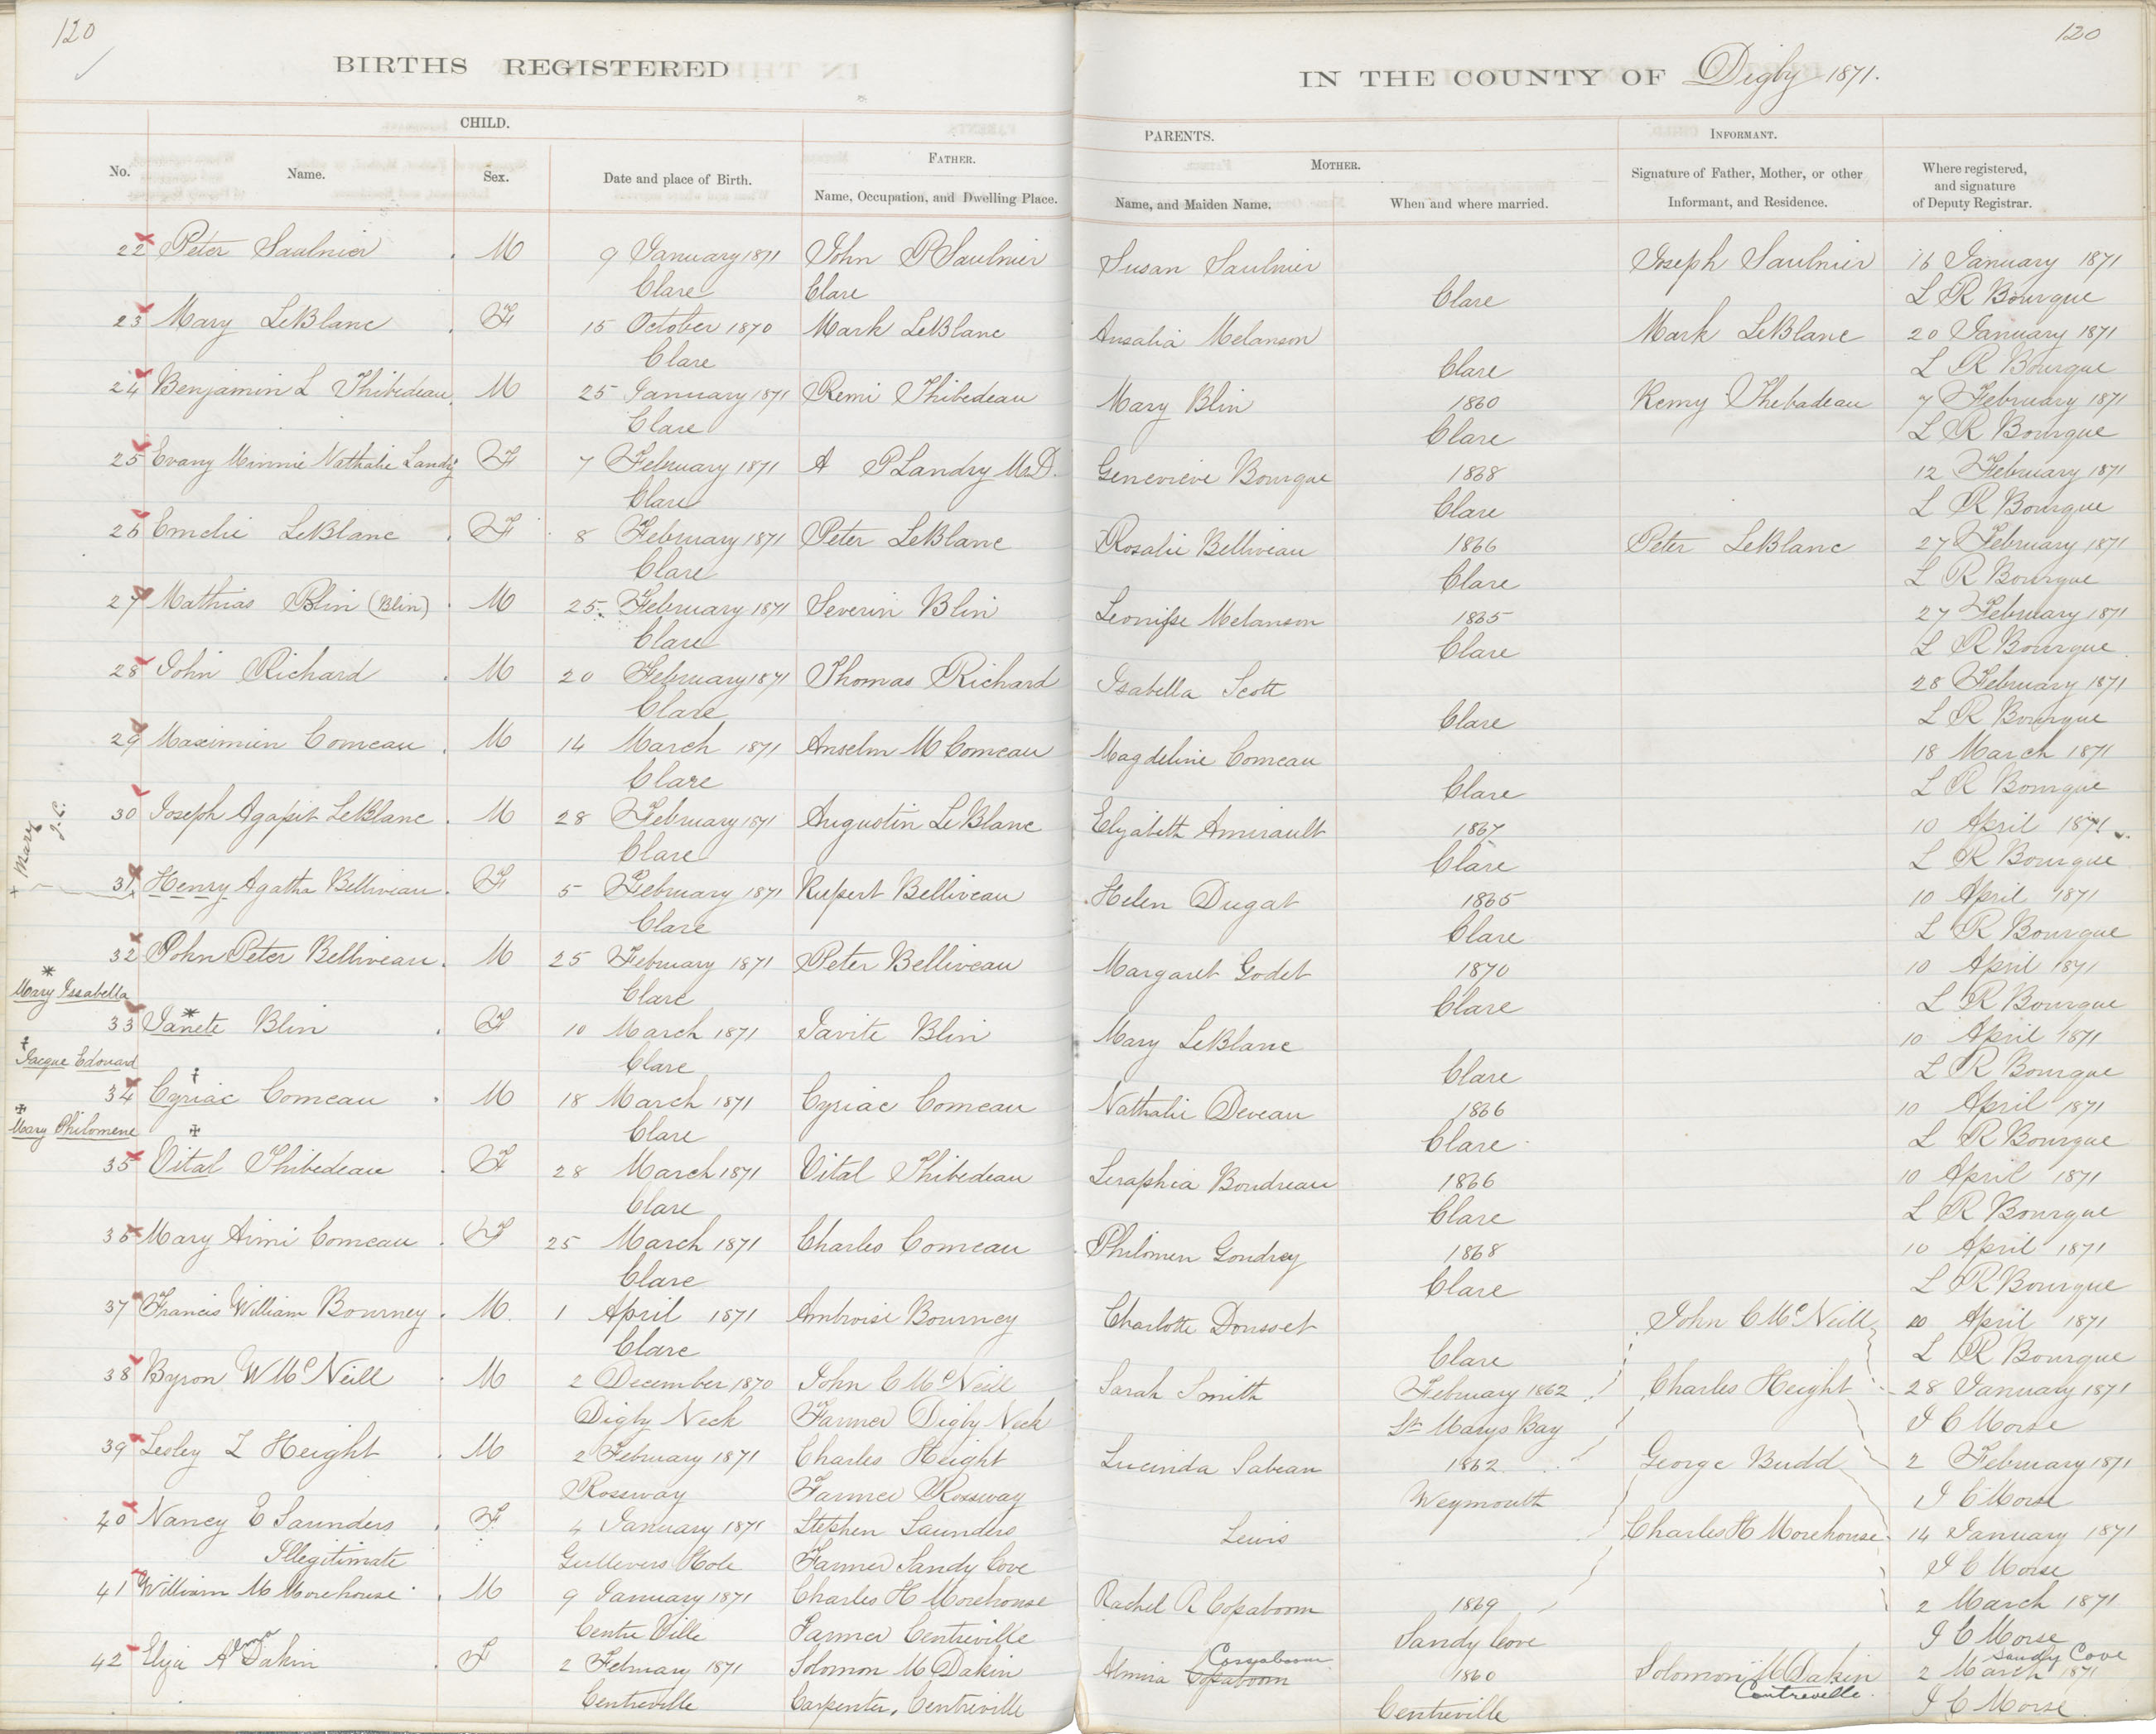 120
120
BIRTHS REGISTERED
IN THE COUNTY OF Digby 1871.
CHILD.
PARENTS.
INFORMANT.
No.
Name.
Sex.
Date and place of Birth.
FATHER.
Name, Occupation, and Dwelling Place.
MOTHER.
Name, and Maiden Name.
When and where married.
Signature of Father, Mother, or other
Informant, and Residence.
Where registered,
and signature
of Deputy Registrar.
22 Peter Saulnier . M 9 January 1871 John P Saulnier Susan Saulnier Joseph Saulnier 16 January 1871
Clare Clare Clare L R Bourque
23 Mary LeBlanc . F 15 October 1870 Mark LeBlanc Ausalia Melanson Mark LeBlanc 20 January 1871
Clare Clare L R Bourque
24 Benjamin L Thibedeau. M 25 January 1871 Remi Thibedeau Mary Blin 1860 Remy Thebadeau 7 February 1871
Clare Clare L R Bourque
25 Evany Minnie Nathalie Landry F 7 February 1871 A P Landry M.D. Genevieve Bourque 1868 12 February 1871
Clare Clare L R Bourque
26 Emelie LeBlanc . F 8 February 1871 Peter LeBlanc Rosalie Belliveau 1866 Peter LeBlanc 27 February 1871
Clare Clare L R Bourque
27 Mathias Blin (Blin) . M 25 February 1871 Severin Blin Leonisse Melanson 1865 27 February 1871
Clare Clare L R Bourque
28 John Richard . M 20 February 1871 Thomas Richard Isabella Scott 28 February 1871
Clare Clare L R Bourque
29 Maximien Comeau . M 14 March 1871 Anselm M Comeau Magdeline Comeau 18 March 1871
Clare Clare L R Bourque
30 Joseph Agapit LeBlanc . M 28 February 1871 Augustin LeBlanc Elizabeth Amirault 1867 10 April 1871
Clare Clare L R Bourque
+ Mary
31 Henry Agatha Belliveau . F 5 February 1871 Rupert Belliveau Helen Dugat 1865 10 April 1871
Clare Clare L R Bourque
32 John Peter Belliveau . M 25 February 1871 Peter Belliveau Margaret Godet 1870 10 April 1871
* Mary Issabella Clare Clare L R Bourque
33 Janete * Blin . F 10 March 1871 Javite Blin Mary LeBlanc 10 April 1871
† Jacque Edouard Clare Clare L R Bourque
34 Cyriac † Comeau . M 18 March 1871 Cyriac Comeau Nathalie Deveau 1866 10 April 1871
✠ Mary Philomene ✠ Clare Clare L R Bourque
35 Vital Thibedeau . F 28 March 1871 Vital Thibedeau Seraphia Boudreau 1866 10 April 1871
Clare Clare L R Bourque
36 Mary Aimi Comeau . F 25 March 1871 Charles Comeau Philomen Goudrey 1868 10 April 1871
Clare Clare L R Bourque
37 Francis William Bourney . M. 1 April 1871 Ambroise Bourney Charlotte Dousset John C McNeill 10 April 1871
Clare Clare L R Bourque
38 Byron W McNeill . M 2 December 1870 John C McNeill Sarah Smith February 1862 Charles Height 28 January 1871
Digby Neck Farmer Digby Neck St Marys Bay J C Morse
39 Lesley L Height . M 2 February 1871 Charles Height Lucinda Sabean 1862 George Budd 2 February 1871
Rossway Farmer Rossway Weymouth J C Morse
40 Nancy E Saunders . F 4 January 1871 Stephen Saunders Lewis Charles H Morehouse 14 January 1871
Illegitimate Gullevers Hole Farmer Sandy Cove J C Morse
41 William M Morehouse . M 9 January 1871 Charles H Morehouse Rachel R Copaboom 1869 2 March 1871
Centre Ville Farmer Centreville Sandy Cove J C Morse
Sandy Cove
42 Eliza A Dakin . F 2 February 1871 Solomon M Dakin Almira Copaboom 1860 Solomon M Dakin 2 March 1871
Centreville Carpenter, Centreville Centreville Centreville J C Morse